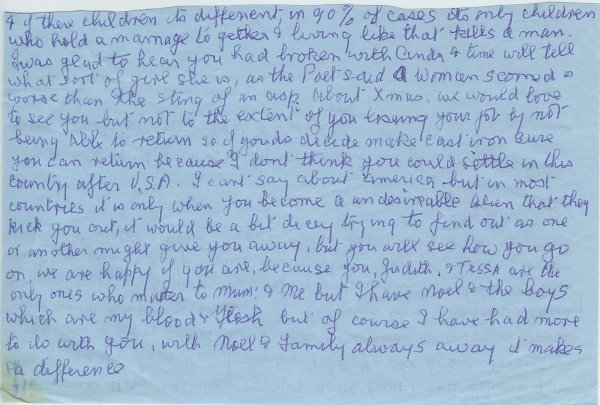 & if there children its different in 90% of cases its only children
who hold a marriage to gether & living like that kills a man.
I was glad to hear you had broken with Linda & time will tell
what sort of girl she is, as the Poet said a Woman scorned is
worse than the sting of an asp. About Xmas, we would love
to see you but not to the extent of you losing your job by not
being able to return so if you do decide make cast iron sure
you can return because I dont think you could settle in this
country after U.S.A. I cant say about america but in most
countries it is only when you become a undesirable alien that they
kick you out, it would be a bit dicey trying to find out as one
or another might give you away, but you will see how you go
on, we are happy if you are, because you, Judith, & TESSA are the
only ones who matter to Mum & Me but I have Noel & the boys
which are my blood & flesh but of course I have had more
to do with you, with Noel & Family always away it makes
a difference